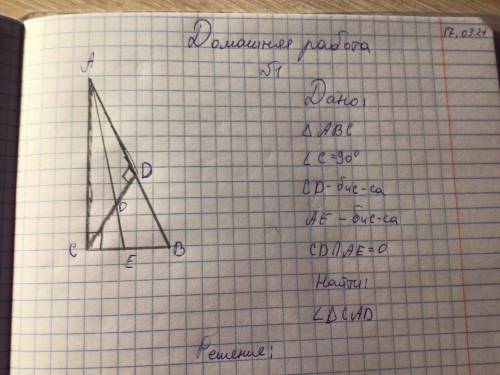 Домашняя работа
17.03.21
№1
A
D
O
C
E
B
Дано:
△ABC
∠C=90°
CD-бис-са
AE-бис-са
CD∩AE=O
Найти:
∠DCAD
Решение: